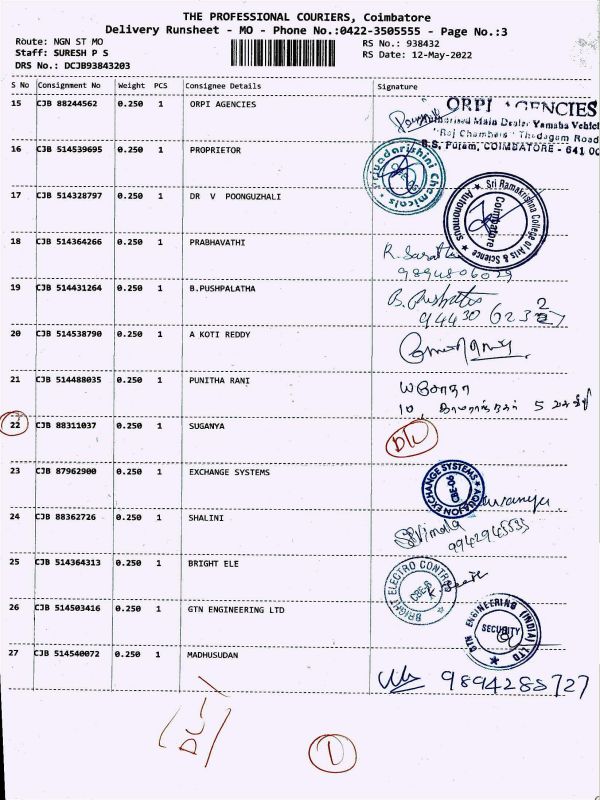 THE PROFESSIONAL COURIERS, Coimbatore
Delivery Runsheet - MO - Phone No.:0422-3505555 - Page No.:3
Route: NGN ST MO
Staff: SURESH P S
DRS No.: DCJB93843203
RS No.: 938432
RS Date: 12-May-2022
S No Consignment No Weight PCS Consignee Details Signature
15 CJB 88244562 0.250 1 ORPI AGENCIES
ORPI AGENCIES
Authorised Main Dealer Yamaha Vehicl
"Raj Chambers" Thadagam Road
R.S. Puram, COIMBATORE - 641 00
16 CJB 514539695 0.250 1 PROPRIETOR
Priyadarishini Chemicals
17 CJB 514328797 0.250 1 DR V POONGUZHALI
Sri Ramakrishna College of Arts & Science
Autonomous
Coimbatore
18 CJB 514364266 0.250 1 PRABHAVATHI
R. Sarat
9894806029
19 CJB 514431264 0.250 1 B.PUSHPALATHA
B. Pushpalatha
94430 62327
20 CJB 514538790 0.250 1 A KOTI REDDY
21 CJB 514488035 0.250 1 PUNITHA RANI
யசோதா
10
22 CJB 88311037 0.250 1 SUGANYA
D/L
23 CJB 87962900 0.250 1 EXCHANGE SYSTEMS
AQUAION EXCHANGE SYSTEMS
CBE-06
24 CJB 88362726 0.250 1 SHALINI
Vimala
9942945535
25 CJB 514364313 0.250 1 BRIGHT ELE
BRIGHT ELECTRO CONTRO
CBE-6
26 CJB 514503416 0.250 1 GTN ENGINEERING LTD
GTN ENGINEERING (INDIA) LTD
SECURITY
27 CJB 514540072 0.250 1 MADHUSUDAN
9894285727
DL-1
1